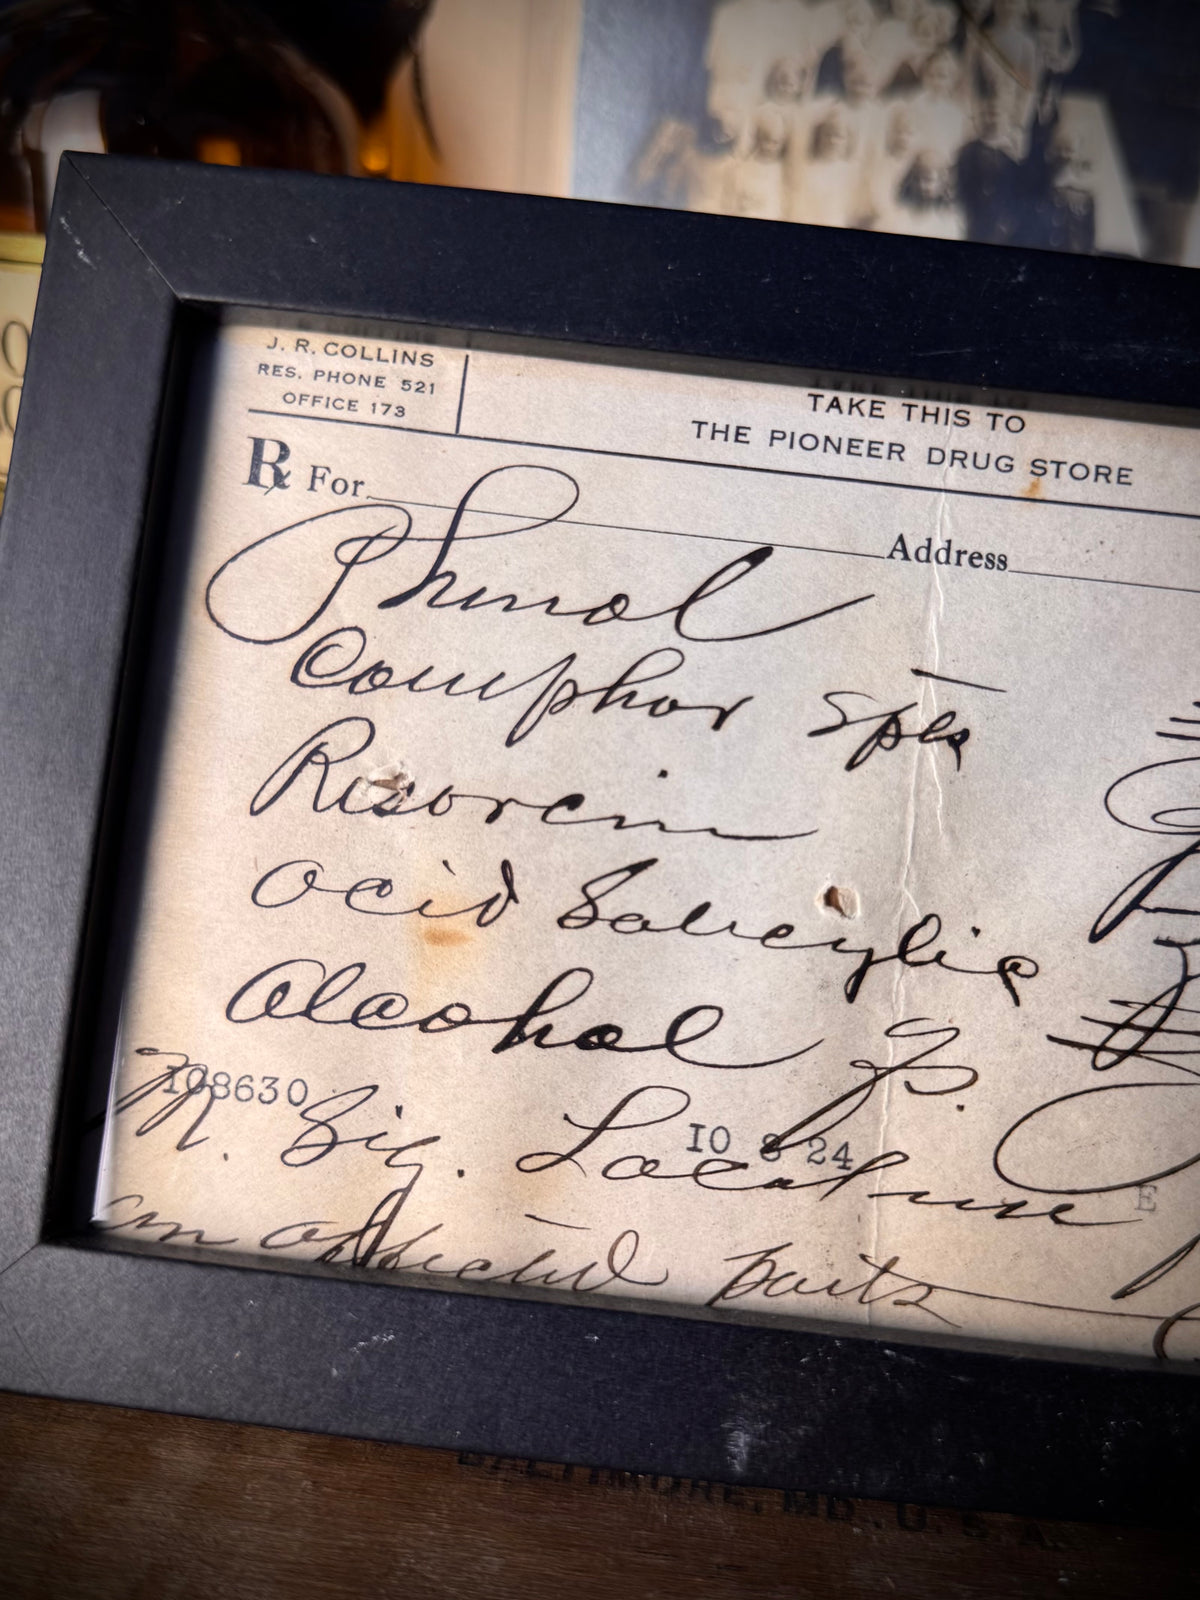 J. R. COLLINS
RES. PHONE 521
OFFICE 173
TAKE THIS TO
THE PIONEER DRUG STORE
Rx For
Address
Phenol
Camphor Spts
Resorcin
acid Salicylic
Alcohol
108630
M. Sig.
10 8 24
on affected parts
E
BALTIMORE, MD., U.S.A.